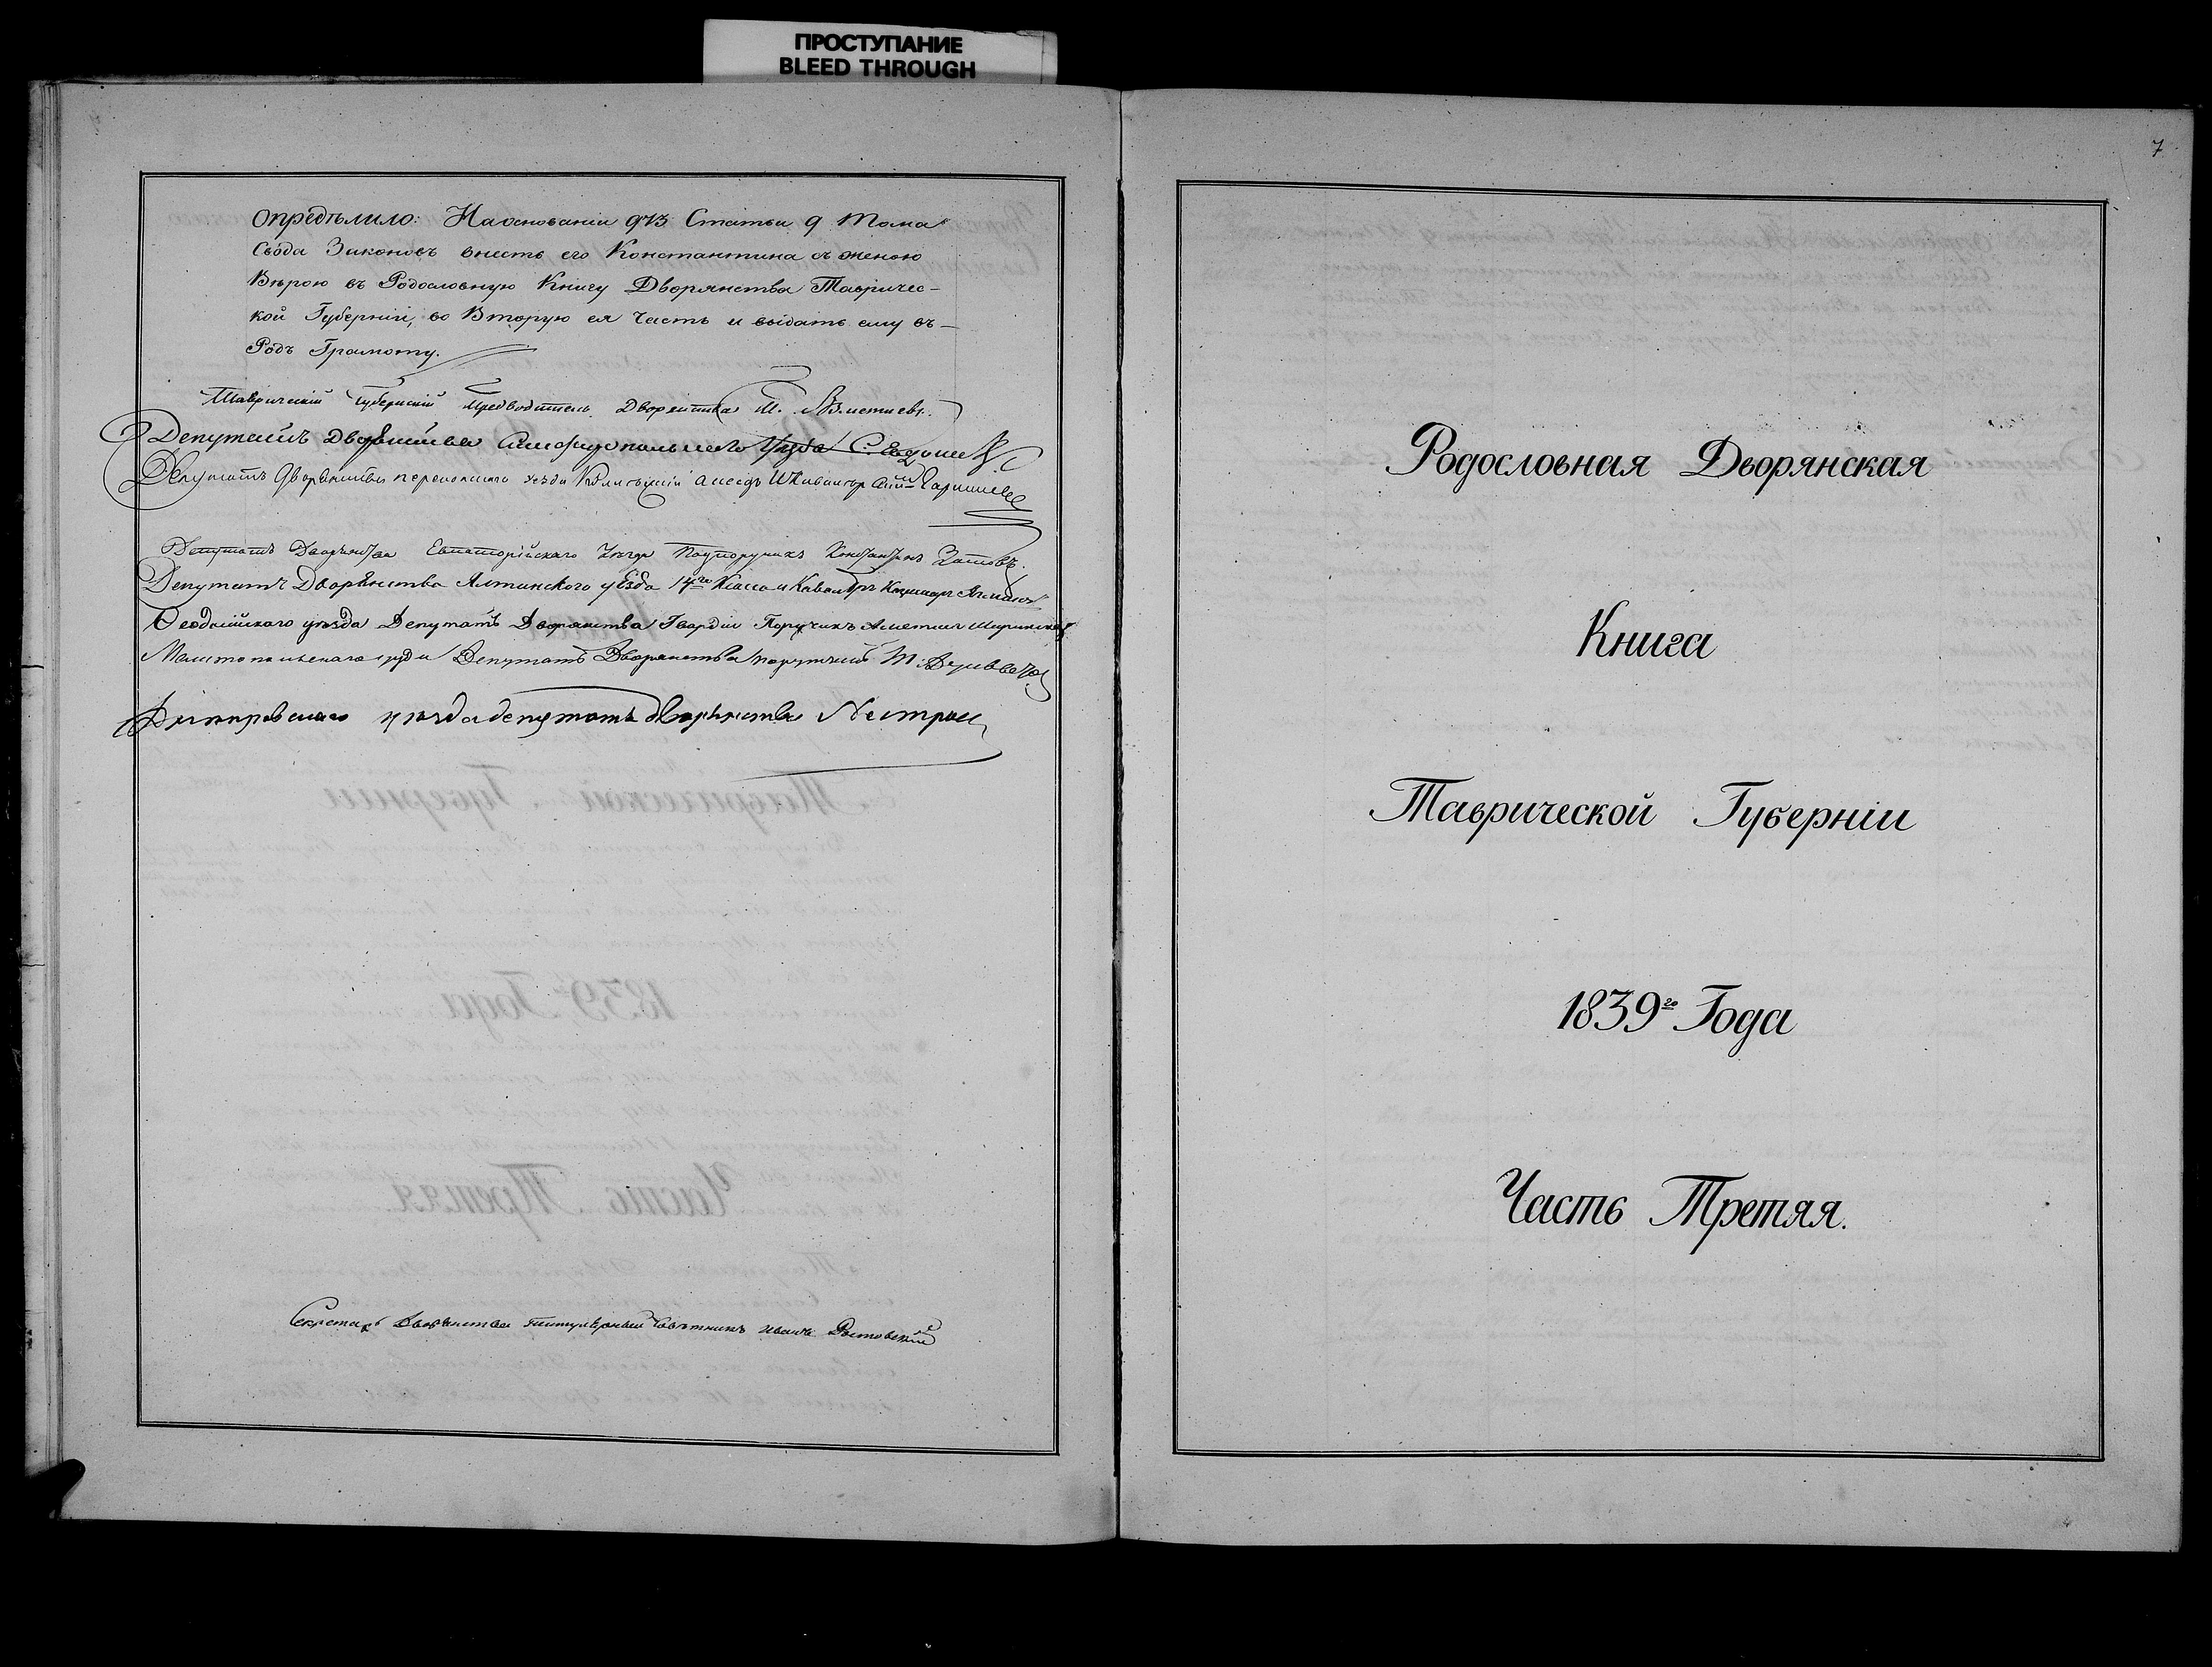 ПРОСТУПАНИЕ
BLEED THROUGH
Опредѣлило: На основаніи 973 Статьи 9 Тома
Свода Законовъ внесть его Константина съ женою
Вѣрою въ Родословную Книгу Дворянства Тавричес-
кой Губерніи, во Вторую ея Часть и выдать ему въ-
Родъ Грамоту.
Таврическій Губернскій Предводитель Дворянства
Депутатъ Дворянства Симферопольского Уѣзда
Депутатъ Дворянства Перекопского уѣзда
Депутатъ Дворянства Евпаторійскаго Уѣзда Подпоручикъ Константинъ
Депутатъ Дворянства Ялтинского уѣзда 14го Класса и Кавалеръ
Ѳеодосійскаго уѣзда Депутатъ Дворянства Гвардіи Поручикъ Аметша Ширинскій
Мелитопольскаго уѣзда Депутатъ Дворянства поручикъ
Днѣпровскаго уѣзда депутатъ дворянства
Секретарь Дворянства титулярный совѣтникъ Иванъ Ростовскій
7
Родословная Дворянская
Книга
Таврической Губерніи
1839го Года
Часть Третяя.